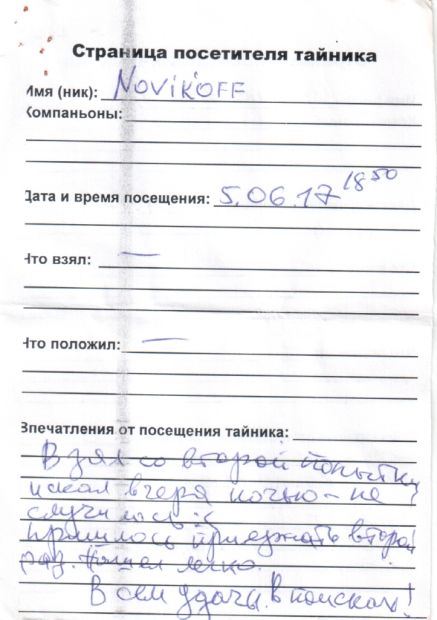 Страница посетителя тайника
Имя (ник): NOVIKOFF
Компаньоны:
Дата и время посещения: 5.06.17 18 50
Что взял: —
Что положил: —
Впечатления от посещения тайника:
Взял со второй попытки
искал вчера ночью - не
случилось :(
пришлось приезжать второй
раз. Нашел легко.
Всем удачи в поисках!